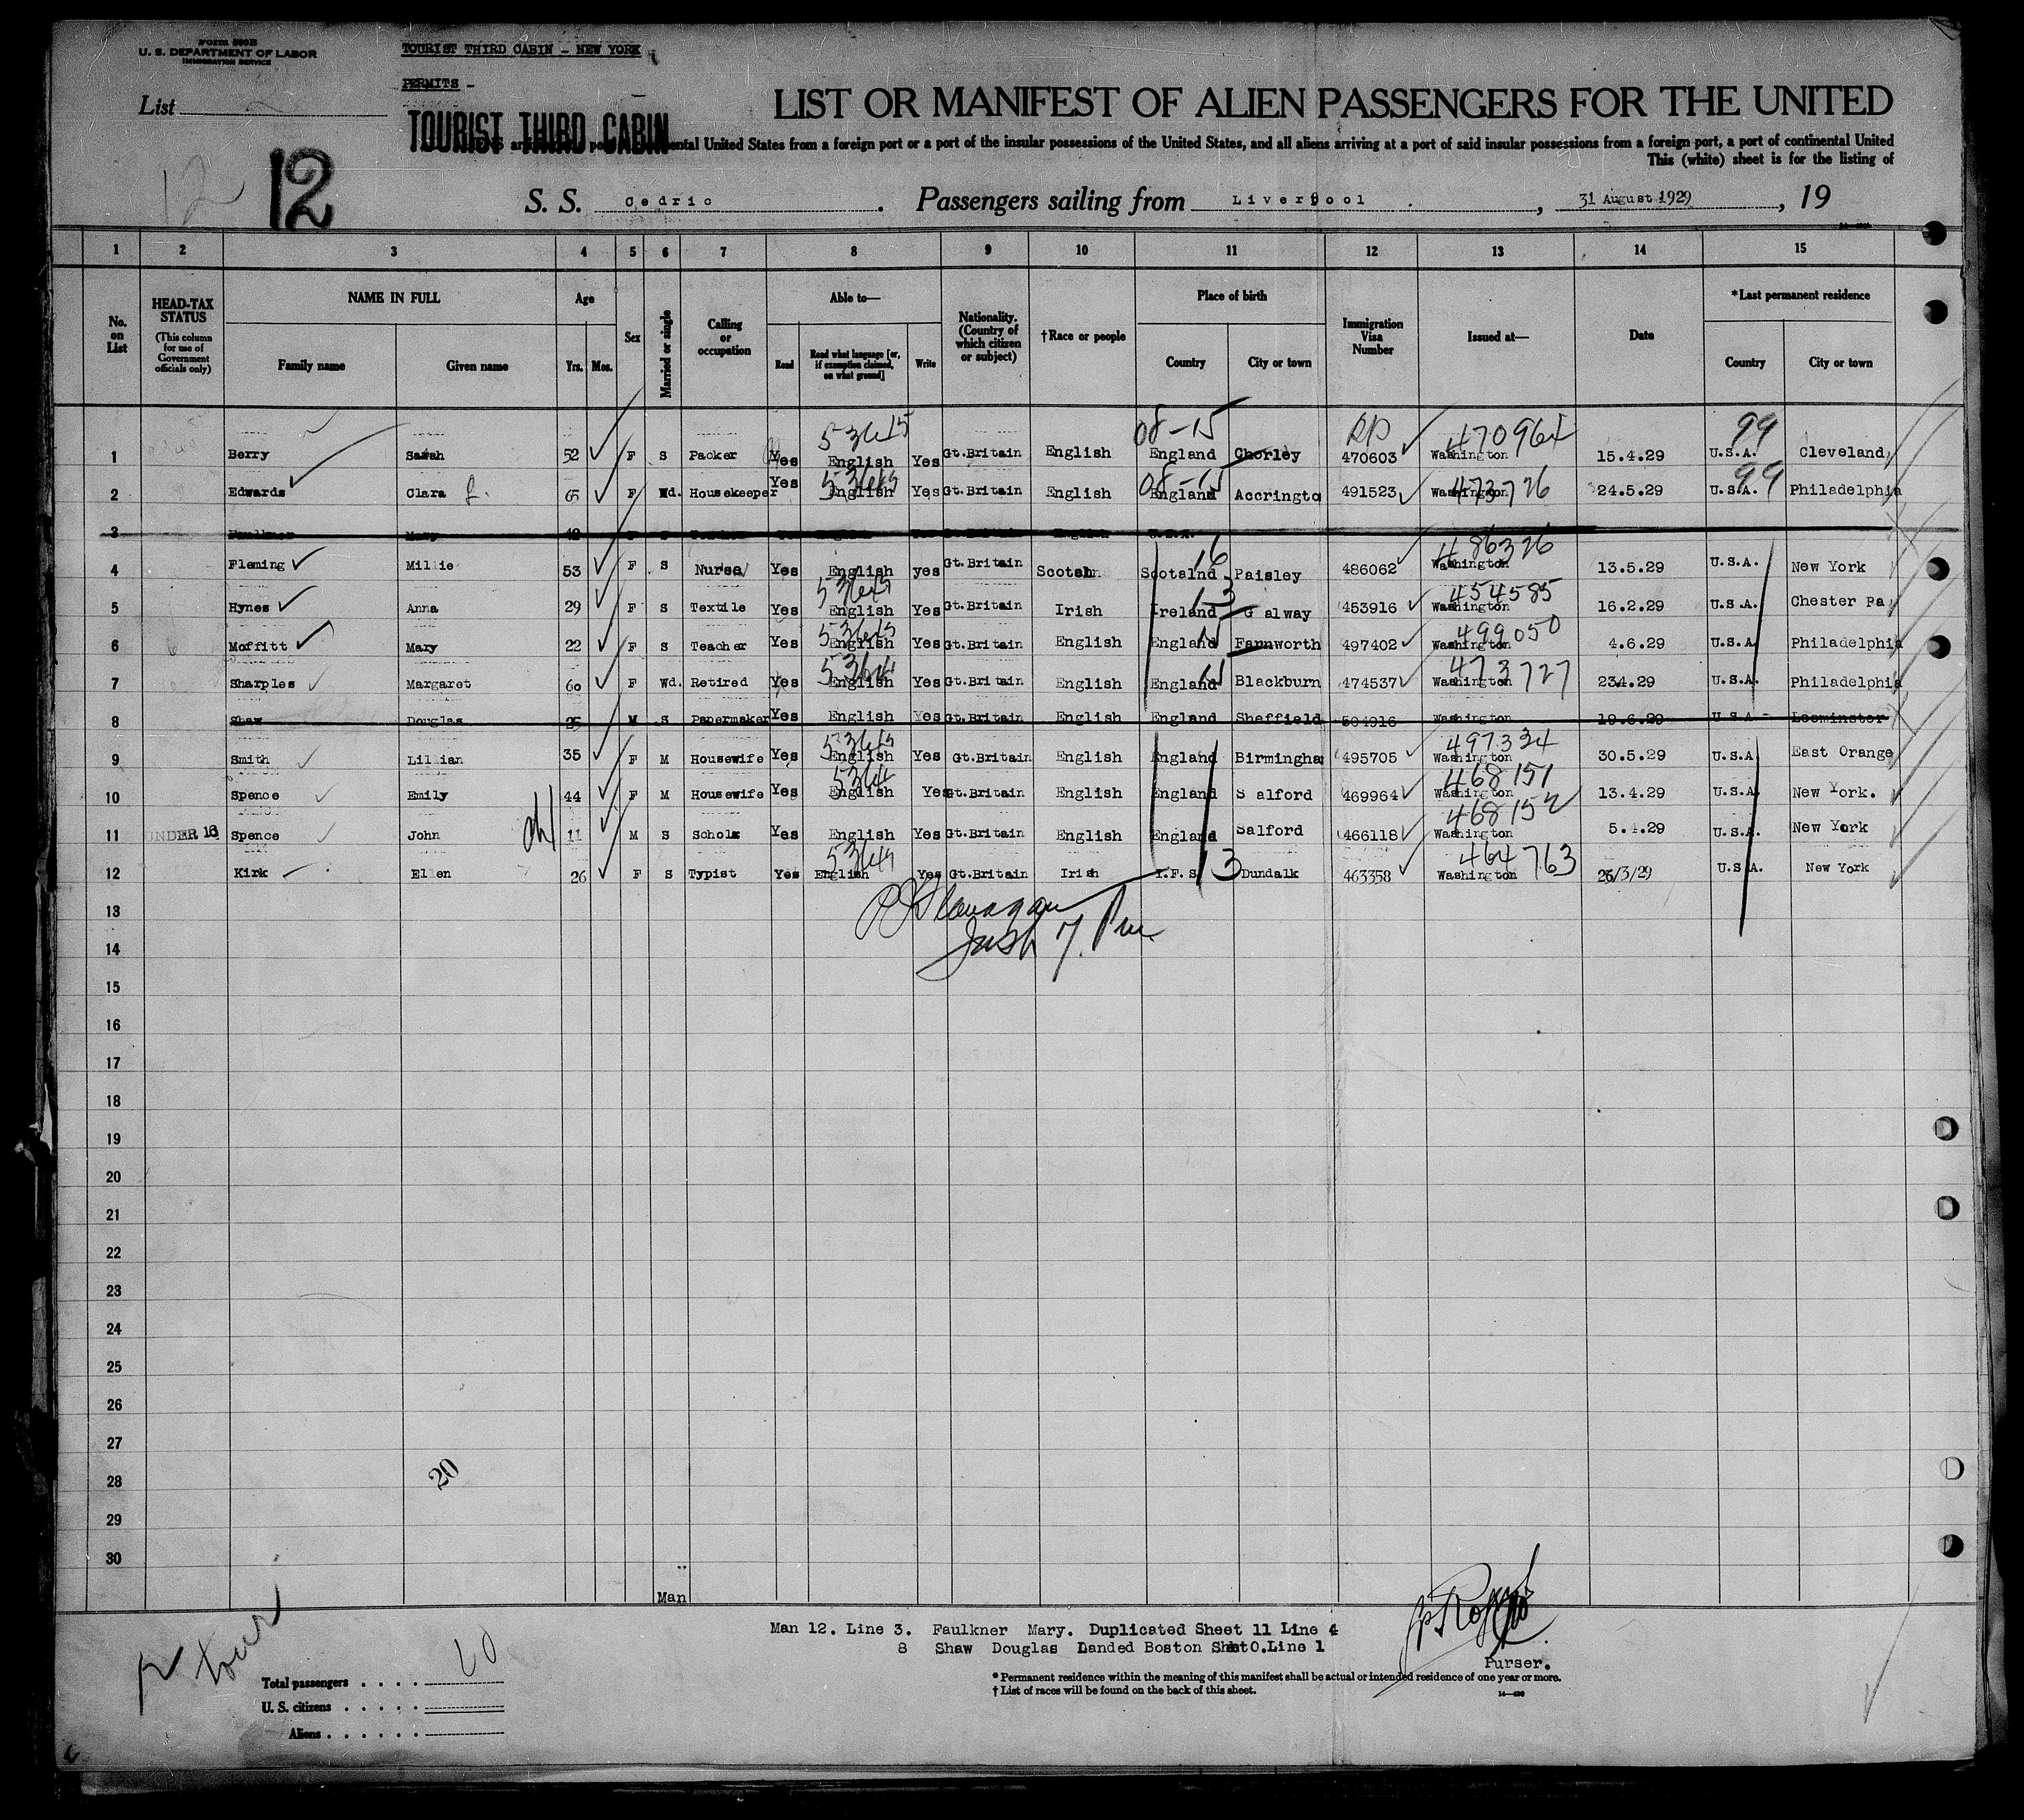 Form 500B
U. S. DEPARTMENT OF LABOR
IMMIGRATION SERVICE
TOURIST THIRD CABIN - NEW YORK
PERMITS -
List
TOURIST THIRD CABIN
12
12
LIST OR MANIFEST OF ALIEN PASSENGERS FOR THE UNITED
ental United States from a foreign port or a port of the insular possessions of the United States, and all aliens arriving at a port of said insular possessions from a foreign port, a port of continental United
This (white) sheet is for the listing of
S. S. Cedric . Passengers sailing from Liverpool , 31 August 1929 , 19
1 2 3 4 5 6 7 8 9 10 11 12 13 14 15
No. on List
HEAD-TAX STATUS (This column for use of Government officials only)
NAME IN FULL Family name Given name
Age Yrs. Mos.
Sex
Married or single
Calling or occupation
Able to— Read Read what language [or, if exemption claimed, on what ground] Write
Nationality. (Country of which citizen or subject)
†Race or people
Place of birth Country City or town
Immigration Visa Number
Issued at—
Date
*Last permanent residence Country City or town
53615 08-15 RP 470964 99
1 Berry Sarah 52 F S Packer Yes English Yes Gt.Britain English England Chorley 470603 Washington 15.4.29 U.S.A. Cleveland
08-15 473726 99
2 Edwards Clara L. 65 F Wd. Housekeeper Yes English Yes Gt.Britain English England Accringto 491523 Washington 24.5.29 U.S.A. Philadelphia
3 Faulkner Mary F S English Yes Gt.Britain English U.S.A.
16 486326
4 Fleming Millie 53 F S Nurse Yes English yes Gt.Britain Scotch Scotalnd Paisley 486062 Washington 13.5.29 U.S.A. New York
13 454585
5 Hynes Anna 29 F S Textile Yes English Yes Gt.Britain Irish Ireland Galway 453916 Washington 16.2.29 U.S.A. Chester Pa
499050
6 Moffitt Mary 22 F S Teacher Yes English Yes Gt.Britain English England Farnworth 497402 Washington 4.6.29 U.S.A. Philadelphia
473727
7 Sharples Margaret 60 F Wd. Retired Yes English Yes Gt.Britain English England Blackburn 474537 Washington 234.29 U.S.A. Philadelphia
8 Shaw Douglas 25 M S Papermaker Yes English Yes Gt.Britain English England Sheffield 504916 Washington 19.6.29 U.S.A - Leominster
497334
9 Smith Lillian 35 F M Housewife Yes English Yes Gt.Britain English England Birmingha 495705 Washington 30.5.29 U.S.A East Orange
468151
10 Spence Emily 44 F M Housewife Yes English Yes Gt.Britain English England Salford 469964 Washington 13.4.29 U.S.A. New York.
468152
11 UNDER 16 Spence John 11 M S Schola Yes English Yes Gt.Britain English England Salford 466118 Washington 5.4.29 U.S.A. New York
13 464763
12 Kirk Ellen 26 F S Typist Yes English Yes Gt.Britain Irish I.F.S. Dundalk 463358 Washington 26/3/29 U.S.A. New York
13
14
15
16
17
18
19
20
21
22
23
24
25
26
27
28
20
29
30
Man
Man 12. Line 3. Faulkner Mary. Duplicated Sheet 11 Line 4
8 Shaw Douglas Landed Boston Line 1
Purser.
Total passengers
U. S. citizens
Aliens
* Permanent residence within the meaning of this manifest shall be actual or intended residence of one year or more.
† List of races will be found on the back of this sheet.